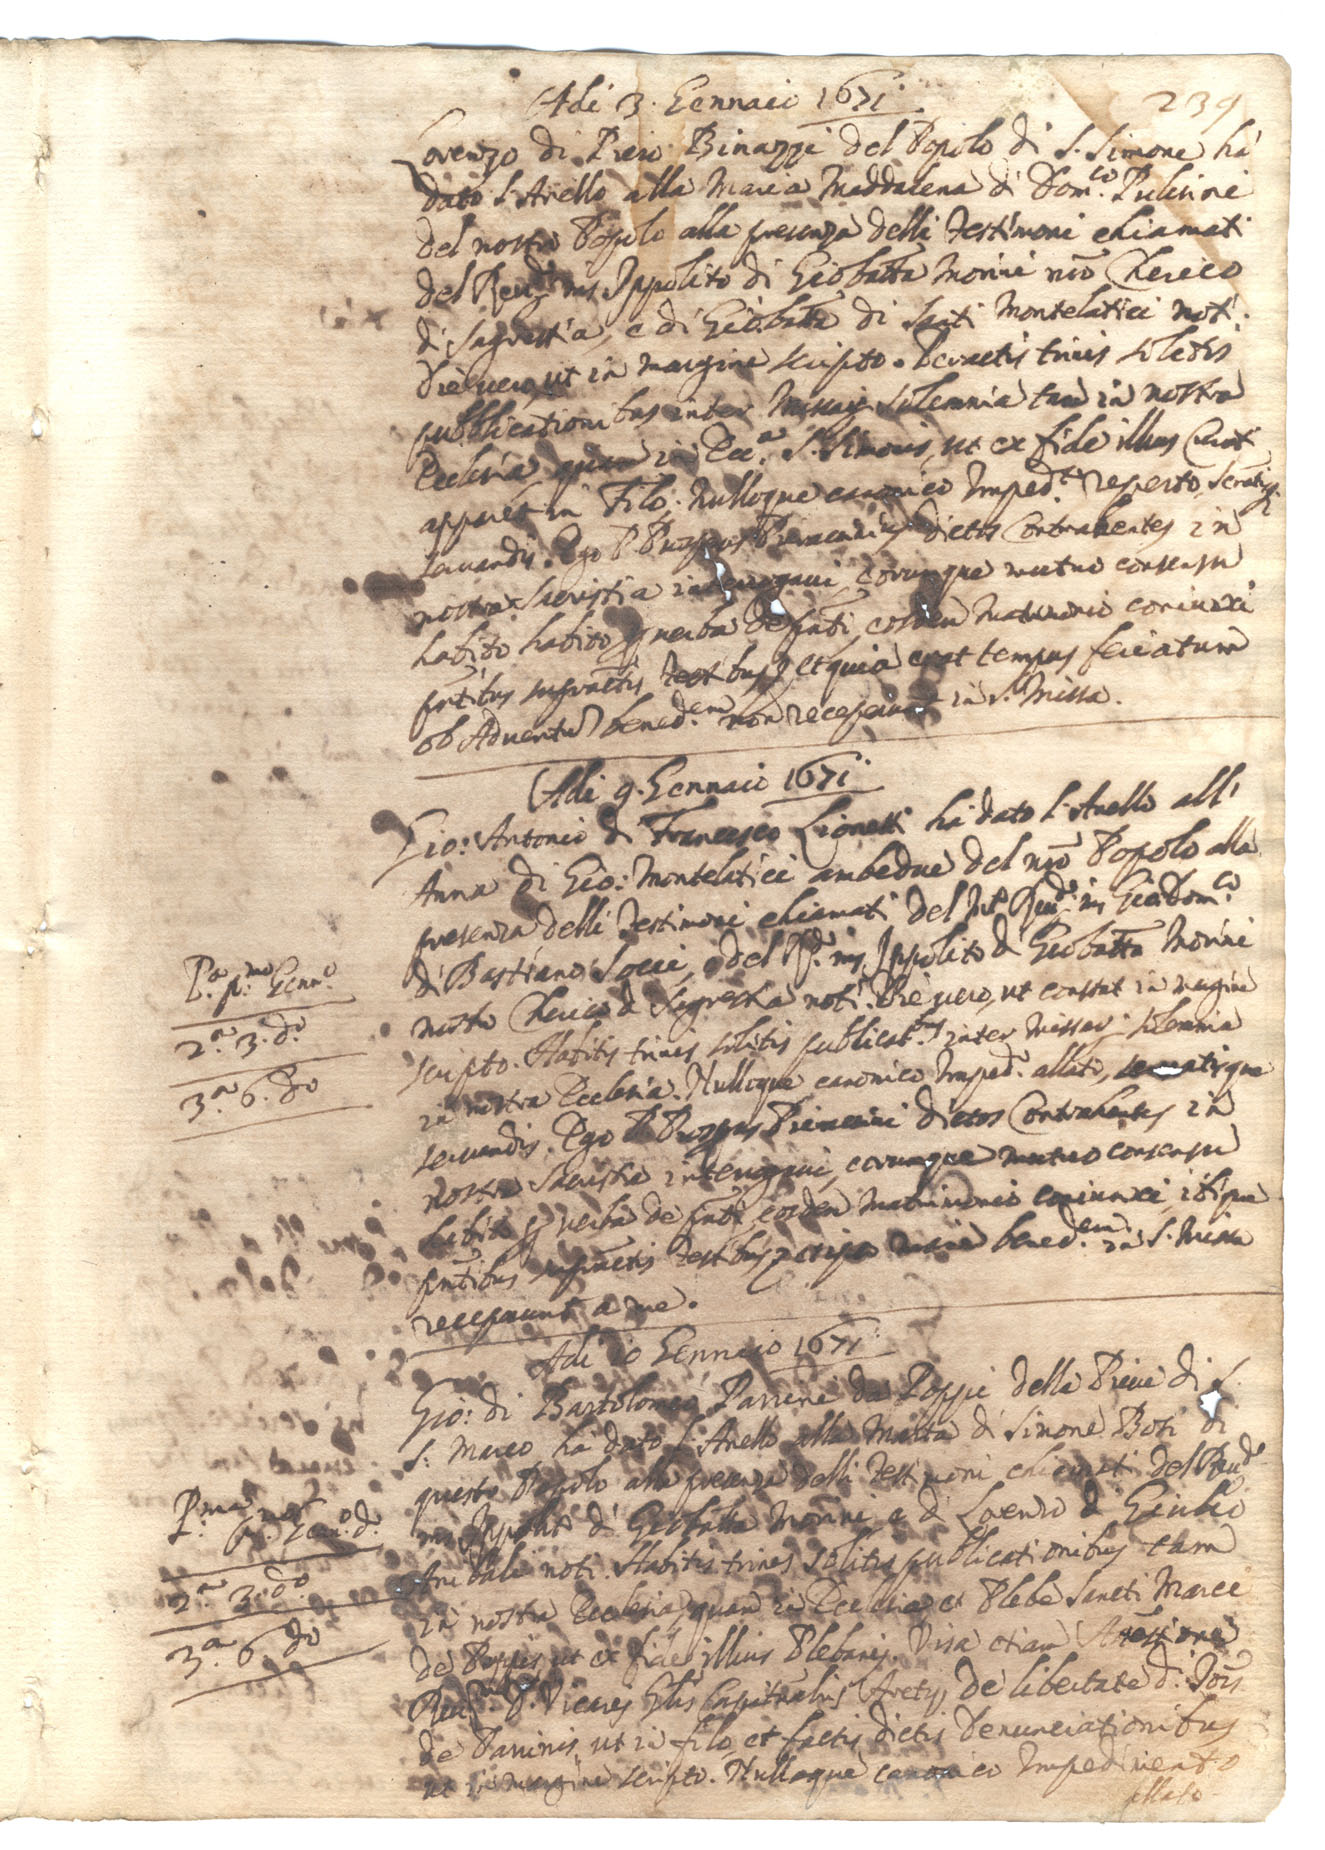 239
Adi 3. Gennaio 1671
Lorenzo di Piero Binazzi del Popolo di S. Simone ha
dato l'Anello alla Maria Maddalena di Dom.co
del nostro Popolo alla presenza delli Testimoni chiamati
del Reud. ms Ippolito di Giobatta Morini nrõ Cherico
di Sagrestia, e di Giobatta di Santi Montelatici noti.
Die vero, ut in margine scripto. Peractis trinis solitis
pubblicationibus inter Missar. solemnia tam in nostra
Ecclesia quam in Ecc.a S. Simonis, ut ex fide illius Curati
apparet in Filo; Nulloque canonico Imped.to reperto,
seruandis. Ego P. Prosper dictos Contrahentes in
nostra Sacristia interrogaui, eorumque mutuo consensu
habito habito p verba de pñti, eosdem Matrimonio coniunxi
pñtibus suprãtis Testibus, et quia erat tempus feriatum
ob Aduentũ bened.em non receperunt in S. Missa.
Adi 9. Gennaio 1671
Gio: Antonio di Francesco Lionetti ha dato l'Anello all'
Anna di Gio: Montelatici ambedue del nrõ Popolo alla
presenza delli Testimoni chiamati del M.to Reud. ms Gio: Dom.co
di Bastiano Socci, e del R.d ms Ippolito di Giobatta Morini
nostro Cherico di Sagrestia noti. Die vero, ut constat in margine
scripto. Habitis trinis solitis publicat.bus inter Missar. solemnia
in nostra Ecclesia. Nulloque canonico Imped.o allato, seruatisque
seruandis. Ego P. Prosper dictos Contrahentes in
nostra Sacristia interrogaui, eorumque mutuo consensu
habito p verba de pñti, eosdem Matrimonio coniunxi, ibique
pñtibus suprãtis Testibus, et ipso mane bened.em in S. Missa
receperunt a me.
P.a p.mo Genn.o
2.a 3. d.o
3.a 6. d.o
Adi 10 Gennaio 1671
Gio: di Bartolomeo Parrini da Poppi della Pieve di S.
S. Marco ha dato l'Anello alla Marta di Simone Boti di
questo Popolo alla presenza delli Testimoni chiamati del Reud.o
ms Ippolito di Giobatta Morini, e di Lorenzo di Giulio
noti. Habitis trinis solitis publicationibus tam
in nostra Ecclesia, quam in Ecclesia et Plebe Sancti Marci
de Poppis, ut ex fide illius Plebani. Visa etiam Attestatione
Reu.mi D. Vicarij Gñlis Capitularis Aretij, de libertate d. Joñis
de Parrinis, ut in filo, et factis dictis Denunciationibus
ut in margine scripto. Nulloque canonico Impedimento
allato
P.ma p.mo Genn.o d.o
2.a 3. d.o
3.a 6. d.o